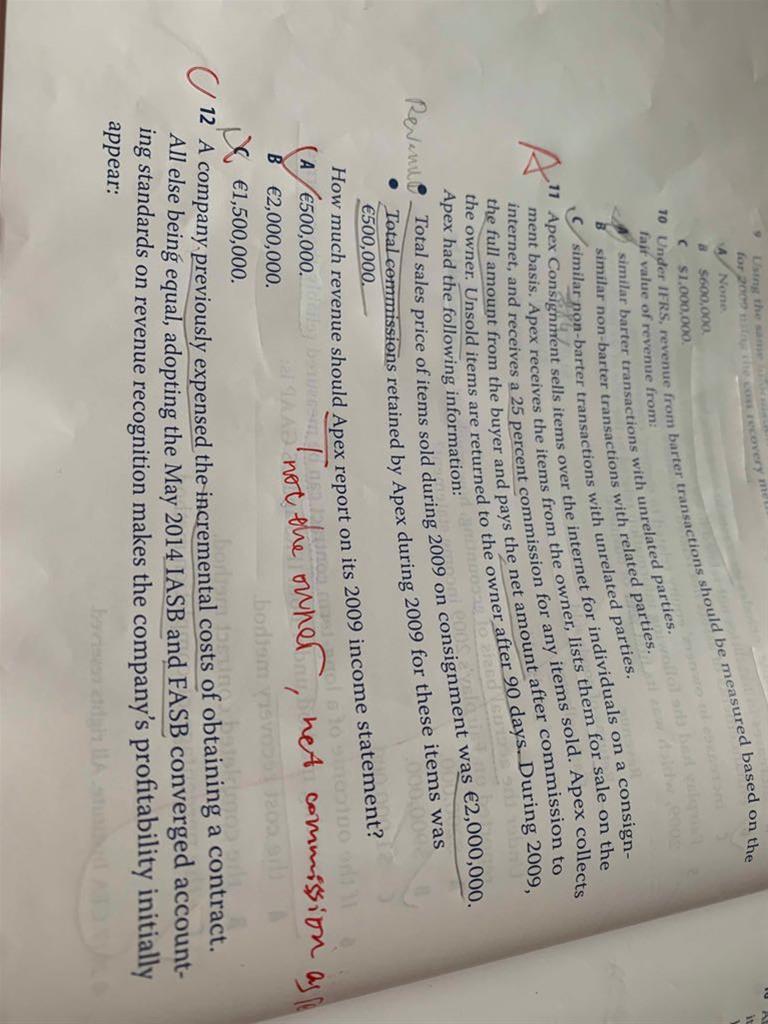 9 Using the same
for 2009 using the cost recovery
A None.
B $600,000.
C $1,000,000.
10 Under IFRS, revenue from barter transactions should be measured based on the
fair value of revenue from:
A similar barter transactions with unrelated parties.
B similar non-barter transactions with related parties.
C similar non-barter transactions with unrelated parties.
A
11 Apex Consignment sells items over the internet for individuals on a consign-
ment basis. Apex receives the items from the owner, lists them for sale on the
internet, and receives a 25 percent commission for any items sold. Apex collects
the full amount from the buyer and pays the net amount after commission to
the owner. Unsold items are returned to the owner after 90 days. During 2009,
Apex had the following information:
Revenue
• Total sales price of items sold during 2009 on consignment was €2,000,000.
• Total commissions retained by Apex during 2009 for these items was
€500,000.
How much revenue should Apex report on its 2009 income statement?
A €500,000.
B €2,000,000.
C €1,500,000.
not the owner, net commission as
C
12 A company previously expensed the incremental costs of obtaining a contract.
All else being equal, adopting the May 2014 IASB and FASB converged account-
ing standards on revenue recognition makes the company's profitability initially
appear: